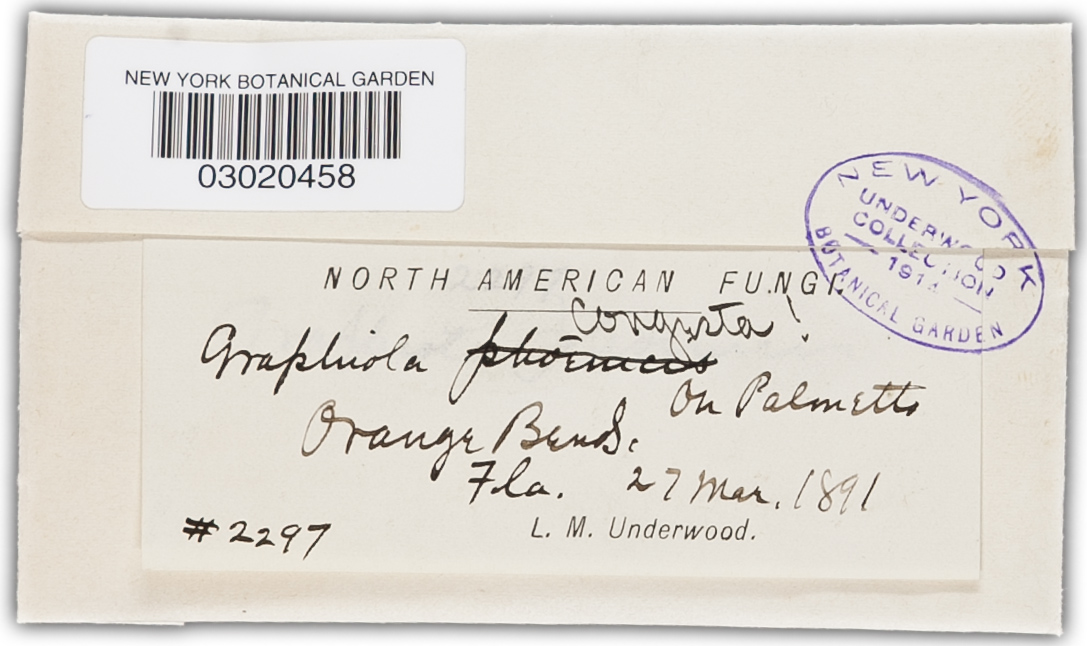 NEW YORK BOTANICAL GARDEN
03020458
NEW YORK
UNDERWOOD
COLLECTION
BOTANICAL GARDEN
NORTH AMERICAN FUNGI.
Congesta!
Graphiola phoenicis
On Palmetto
Orange Bend.
Fla. 27 Mar. 1891
#2297
L. M. Underwood.